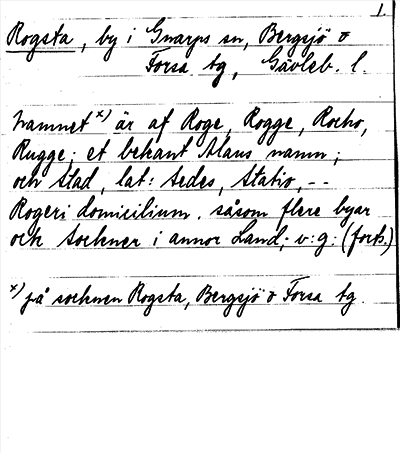 1.
Rogsta, by i Gnarps sn, Bergsjö o
Forsa tg, Gävleb. l.
namnet x) är af Roge, Rogge, Rocho,
Rugge; et bekant Mans namn;
och Stad, lat: Sedes, Statio, --
Rogeri domicilium. såsom flere byar
och Sochner i annor Land; v:g: (forts.)
x) på socknen Rogsta, Bergsjö o Forsa tg.